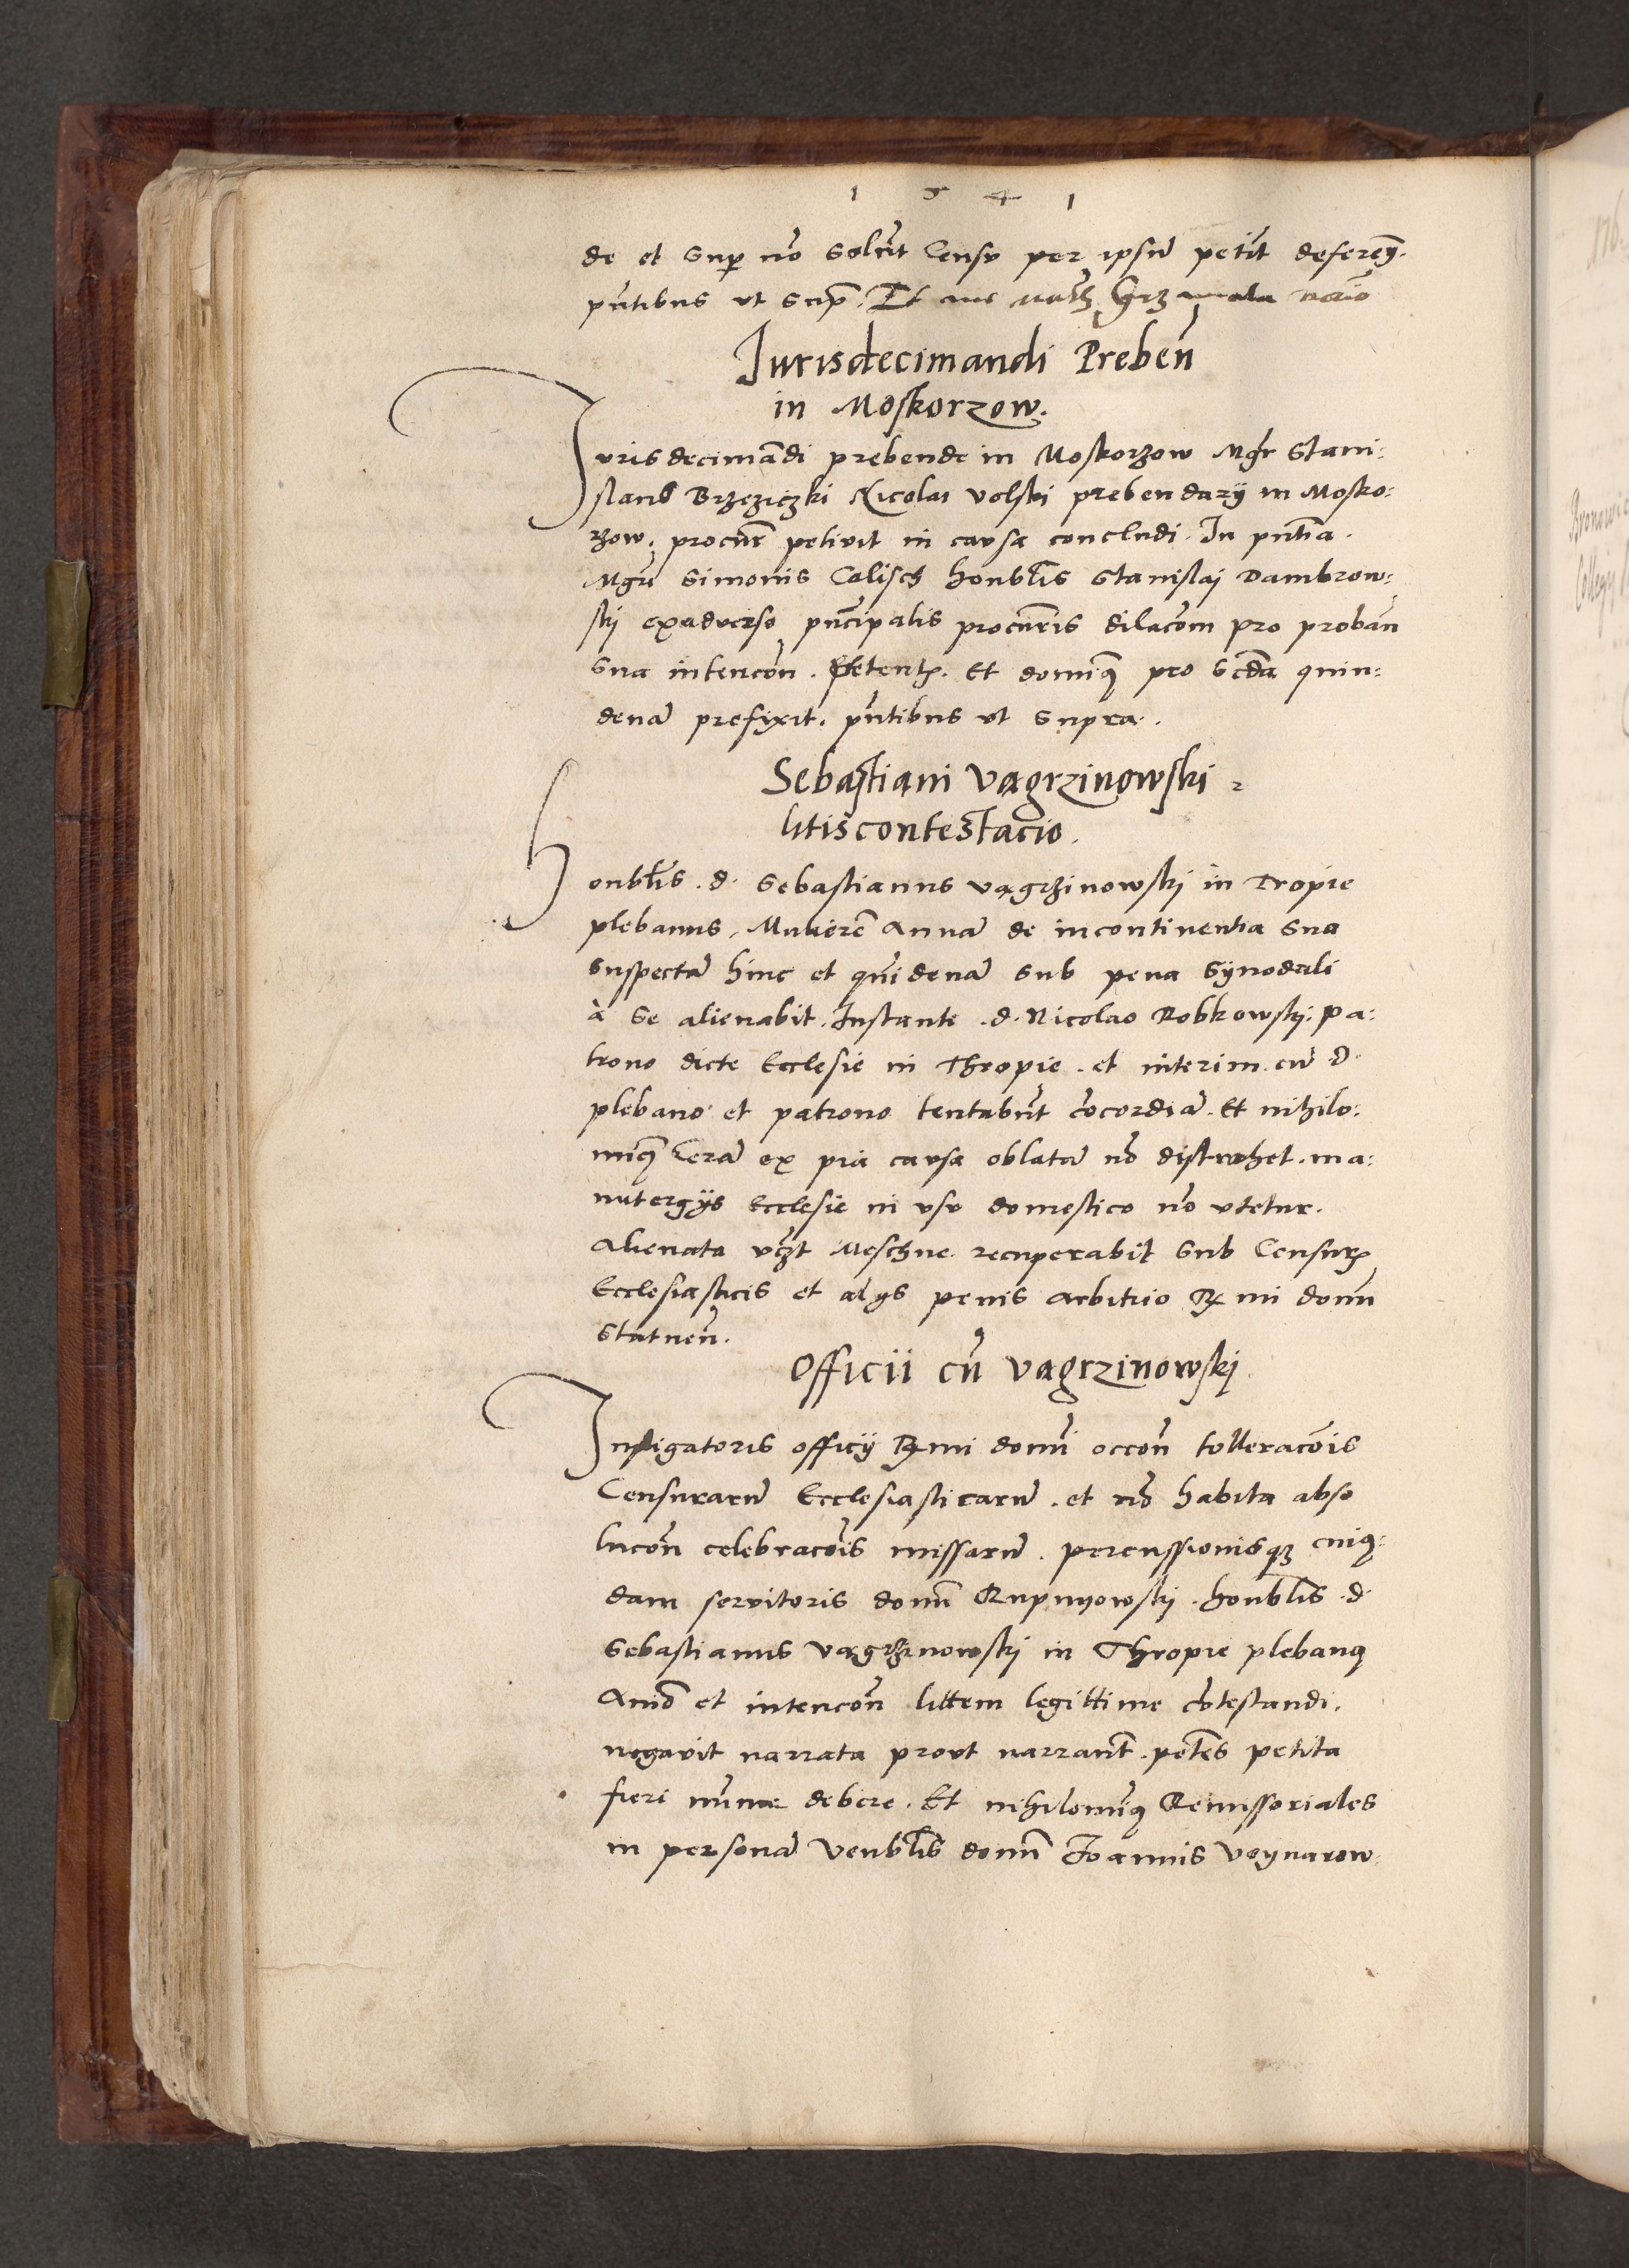 1541
de et sup nō solūt Censu per ipsū petiīt deferen.
pn̄tibus ut sup. Et
Jurisdecimandi Preben̄
in Moskorzow.
Juris decimādi prebende in Moskorzow Mgr̄ Stani:
slaus Brzeziczki Nicolai Volski prebendarij in Mosko:
rzow. procur̄ petivit in causa concludi. In pn̄tia.
Mgr̄i Simonis Calisch honblīs Stanislaj Dambrow:
skj exadverso pn̄cipalis procur̄is dilacōm pro proban̄
sua intencōn. petentꝭ. Et dominꝰ pro scd̄a quin:
denā prefixit. pn̄tibus ut supra.
Sebastiani Vągrzinowski
litiscontestacio.
Honblīs. d. Sebastianus vągrzinowskj in Tropie
plebanus. Mulierē Annā de incontinentia sua
suspectā hinc et quīdenā sub pena Synodali
à se alienabit. Instante. d. Nicolao Robkowskj. pa:
trono dicte Ecclesie in Thropie. et interim. cū d.
plebano et patrono tentabūt cōcordiā. Et nihilo:
minꝰ Cerā ex pia causa oblatā nō distrahet. ma:
nutergijs Ecclesie in usu domestico nō utetur.
Alienata vꝫt Meschne recuperabit sub Censurꝭ
Ecclesiasticis et alijs penis arbitrio Rꝫmi domi
statuen̄.
Officii cū Vągrzinowskj
Instigatoris officij Rꝫmi domī occōn̄ tolleracōis
Censurarū Ecclesiasticarū. et nō habita abso
lucōn̄ celebracōis missarū. percussionisqꝫ cuiꝰ:
dam servitoris domī Rupnyowskj. honblīs. d.
Sebastianus vągrzinowskj in Thropie plebanꝰ
Aniō et intencōn̄ littem legittime cōtestandi.
negavit narrata prout narrant̄. petēs petita
fieri minime debere. Et nihilominꝰ Remissoriales
in personā Venblīs domī Joannis Voynarow